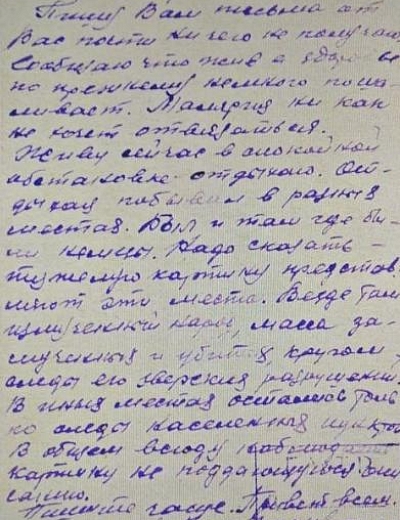 Пишу Вам письма от
Вас почти ни чего не получаю
Сообщаю что жив а здоровье
по прежнему немного поша-
ливает. Малярия ни как
не хочет отвязаться.
Живу сейчас в спокойной
обстановке отдыхаю. От-
дыхая побывали в разных
местах. Был и там где бы-
ли немцы. Надо сказать –
тяжелую картину представ-
ляют эти места. Везде там
измученный народ, масса за-
мученных и убитых кругом
следы его зверских разрушений.
В иных местах остались толь
ко следы населенных пунктов
В общем всюду наблюдает
картину не поддающуюся опи
санию.
Пишите чаще. Привет всем.